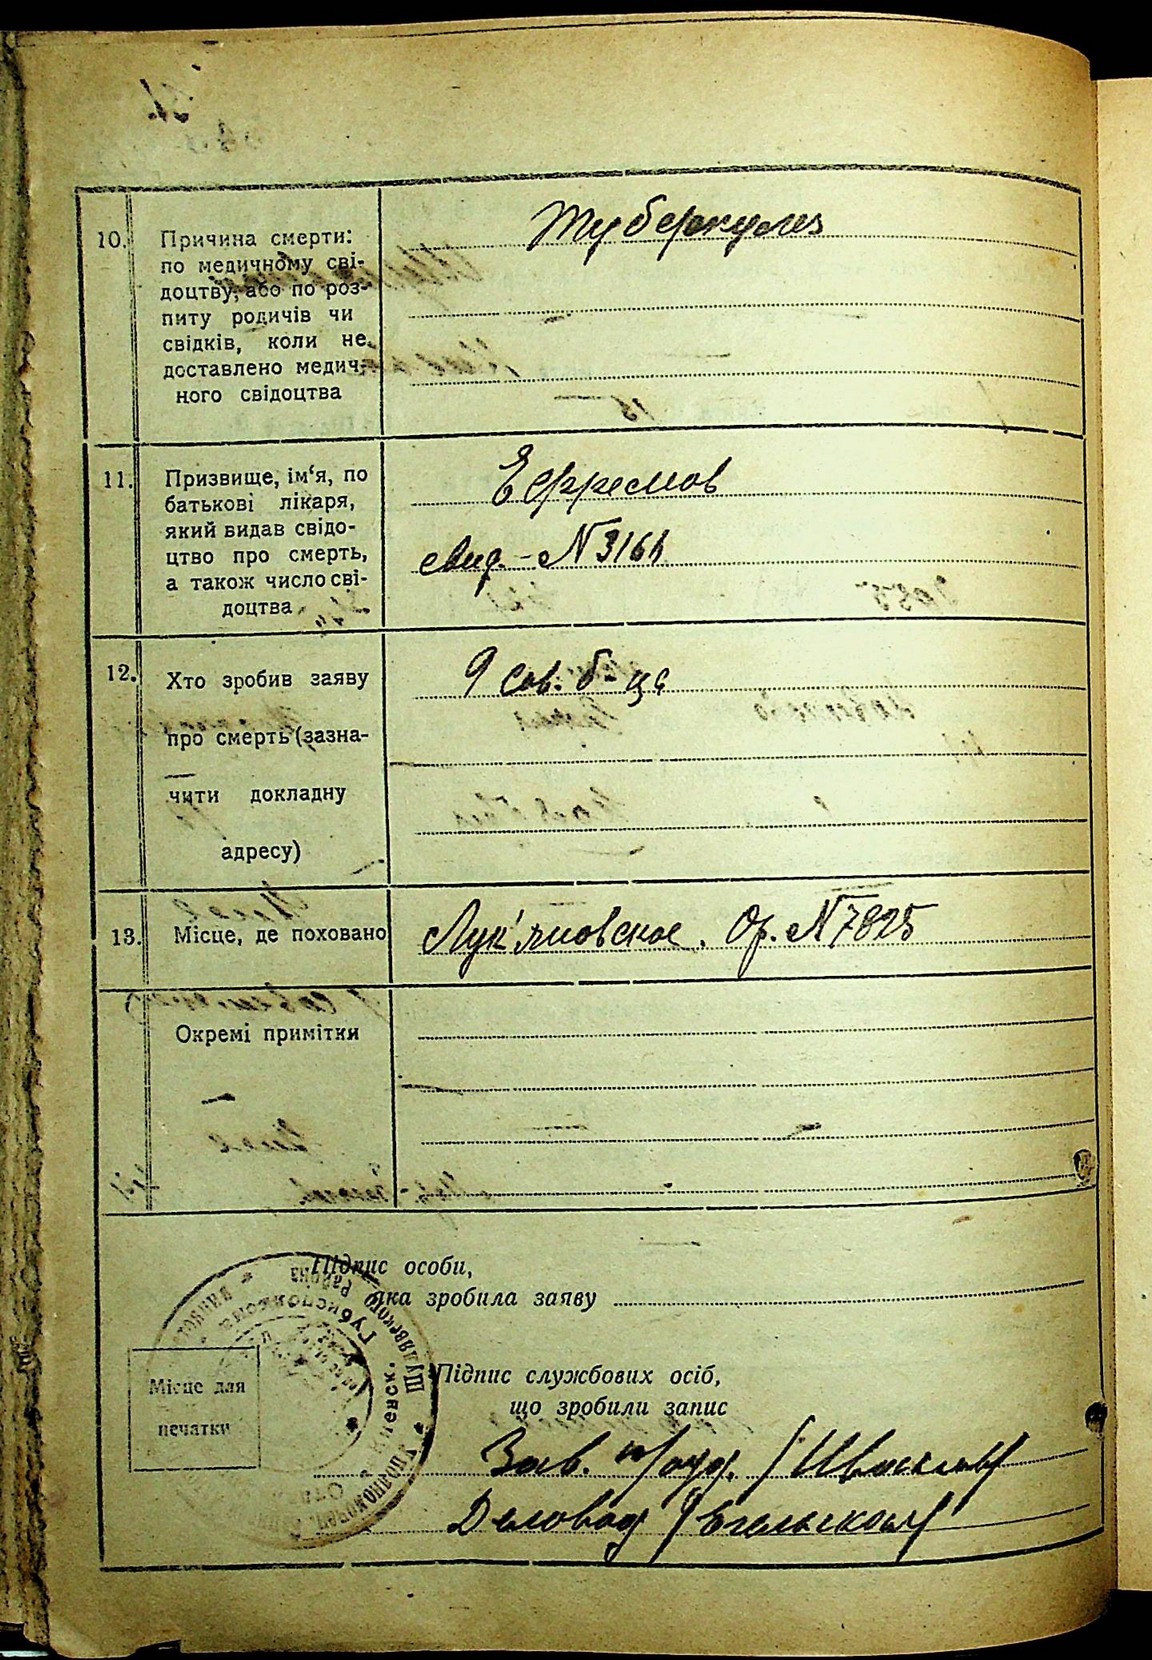 10. Причина смерти:
по медичному сві-
доцтву, або по роз-
питу родичів чи
свідків, коли не
доставлено медич-
ного свідоцтва
Туберкулез
11. Призвище, ім‘я, по
батькові лікаря,
який видав свідо-
цтво про смерть,
а також число сві-
доцтва
Ефремов
свид. - N 3164
12. Хто зробив заяву
про смерть (зазна-
чити докладну
адресу)
9 сов. б-ца
13. Місце, де поховано
Лук'яновское. Ор. N 7825
Окремі примітки
Підпис особи,
яка зробила заяву
Місце для
печатки
Підпис службових осіб,
що зробили запис
Зав.
Деловод